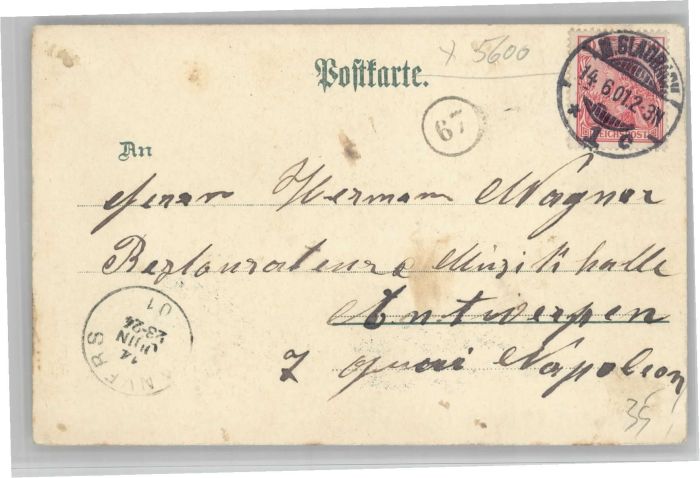 x 5600
Postkarte.
M. GLADBACH
14.6.01.2-3N
* 1 c
REICHSPOST
67
An
Herrn Hermann Wagner
Restaurateur & Musikhalle
Antwerpen
7 quai Napoleon
ANVERS
14
JUIN
23-24
01
35